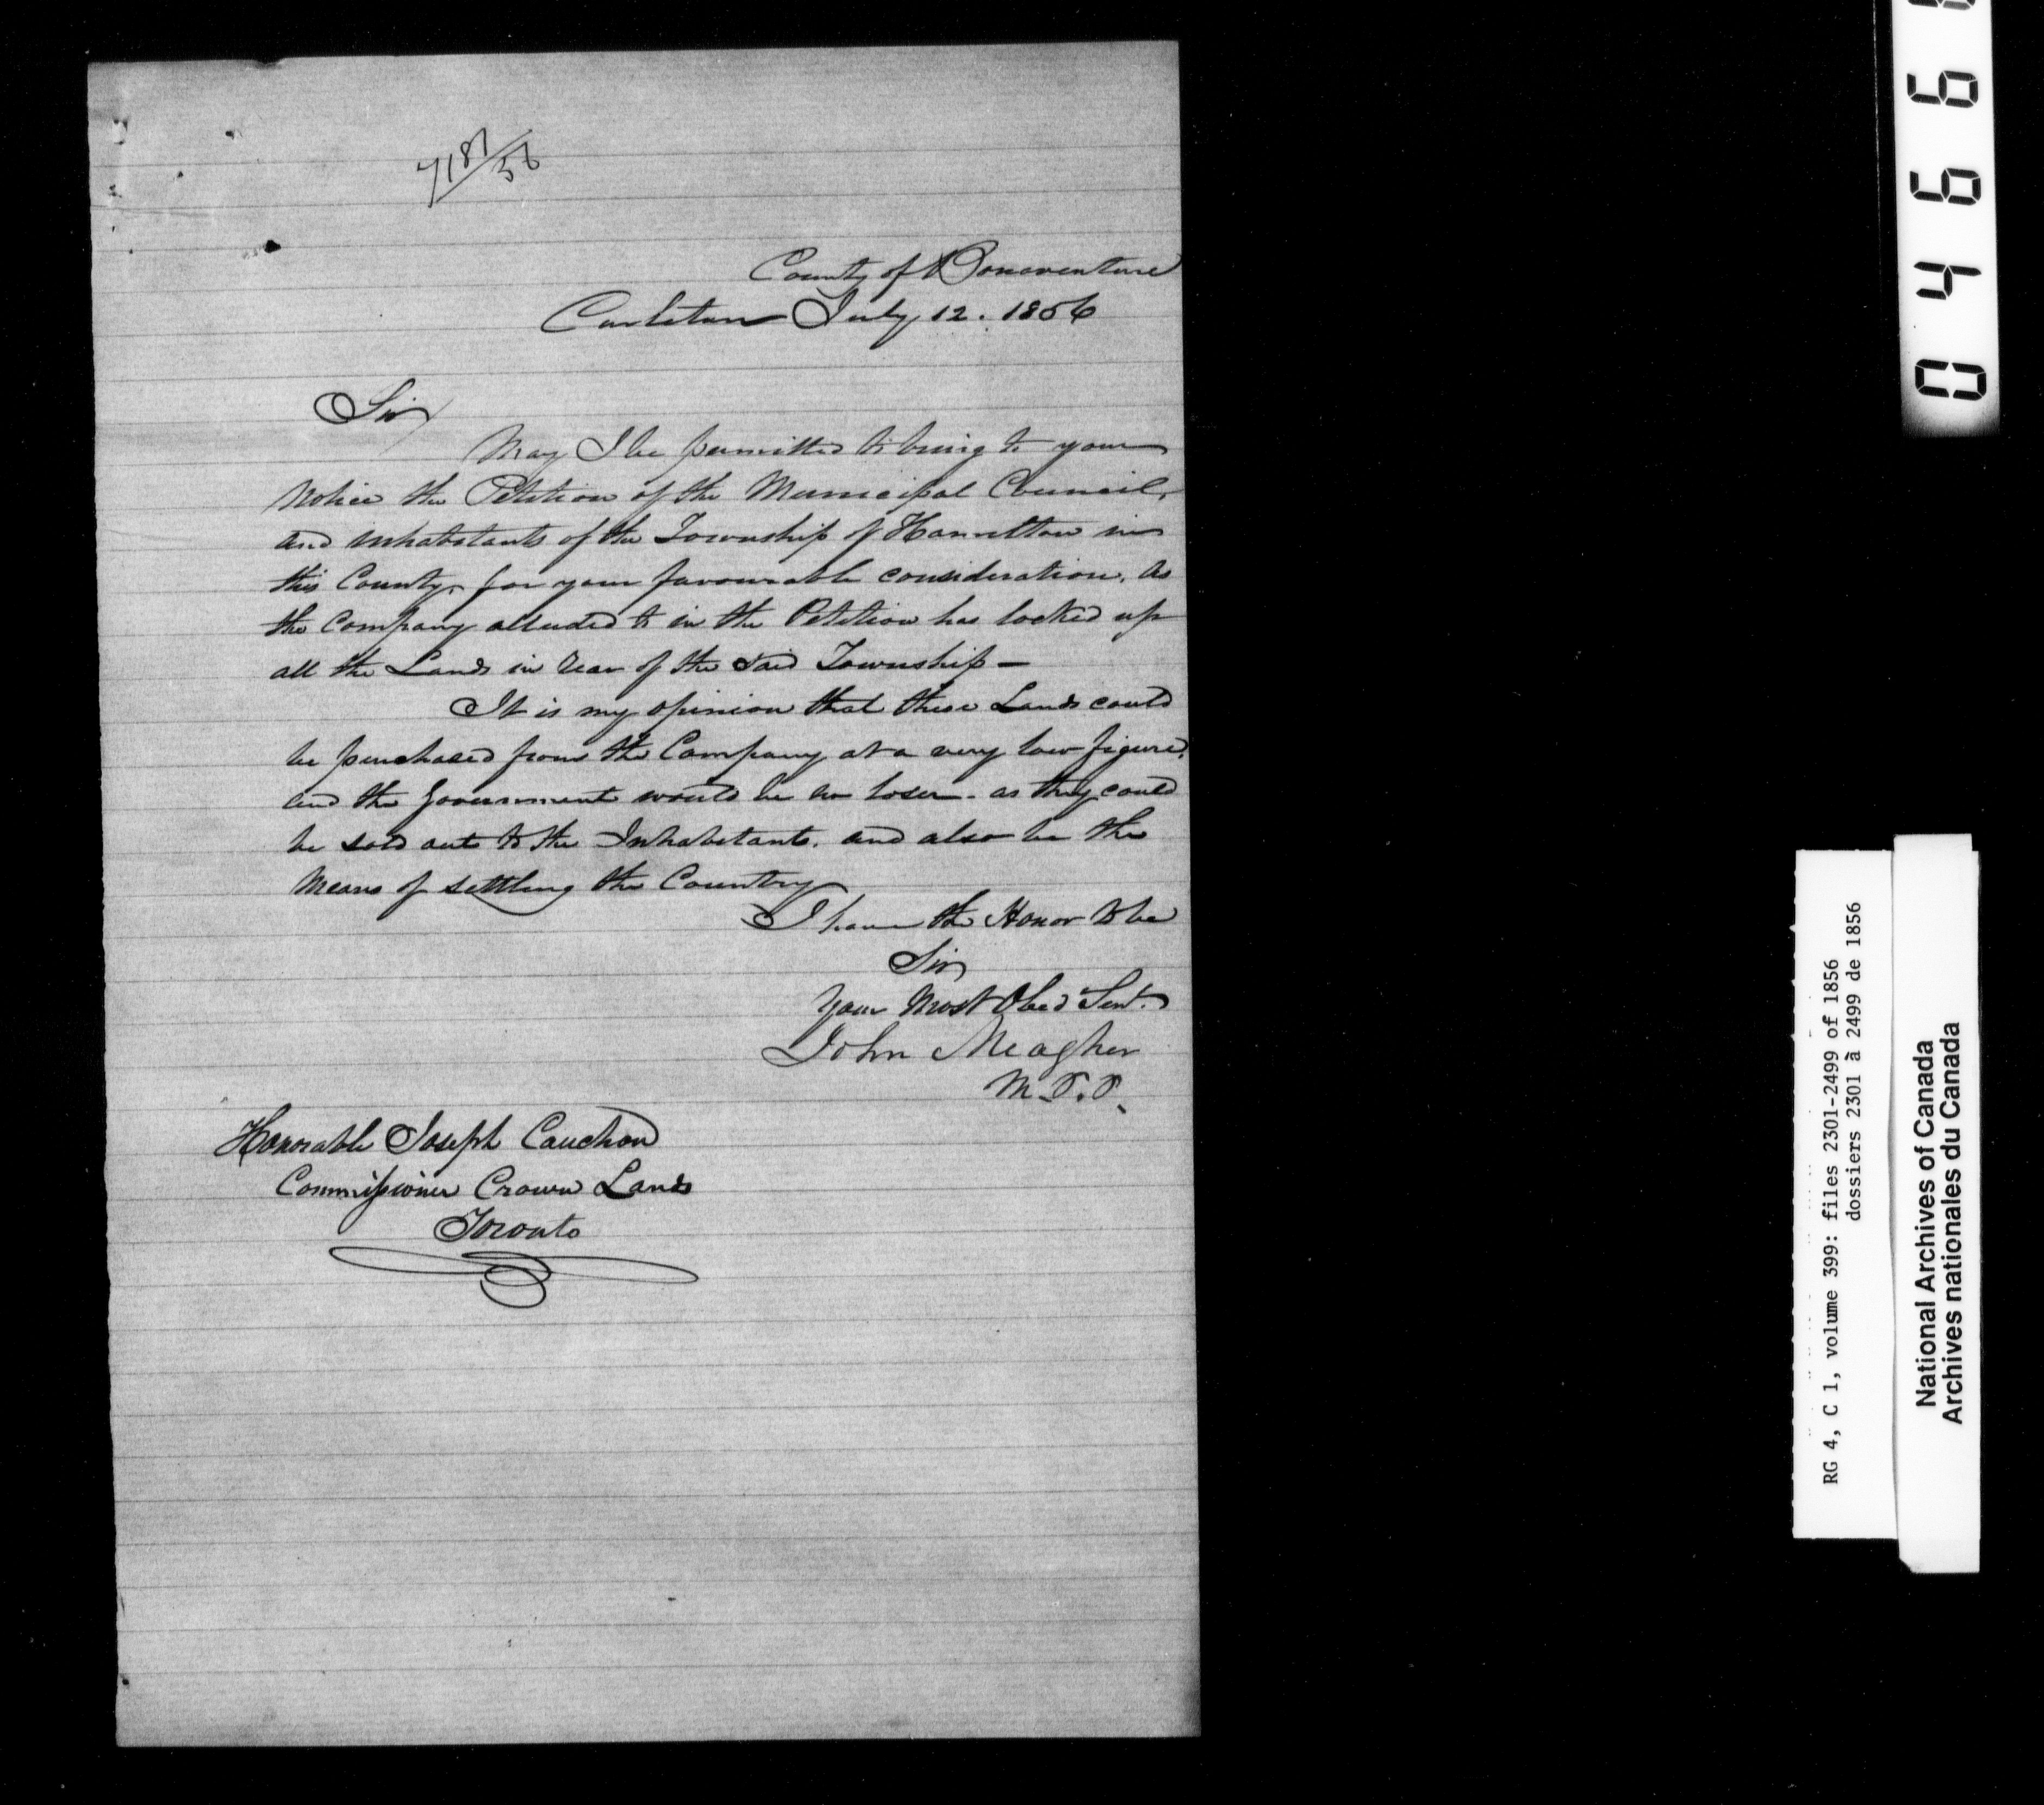 7187/56
County of Bonaventure
Carleton July 12. 1856
Sir
May I be permitted to bring to your
Notice the Petition of the Municipal Council,
and inhabitants of the Township of Hamilton in
this County, for your favourable consideration. As
the Company alluded to in the Petition has locked up
all the Lands in rear of the said Township —
It is my opinion that these Lands could
be purchased from the Company at a very low figure,
and the Government would be no loser - as they could
be sold out to the Inhabitants, and also be the
Means of settling the Country
I have the Honor to be
Sir
Your Most Obed Servt.
John Meagher
M.P.P.
Honorable Joseph Cauchon
Commissioner Crown Lands
Toronto
0466
RG 4, C 1, volume 399: files 2301-2499 of 1856
dossiers 2301 à 2499 de 1856
National Archives of Canada
Archives nationales du Canada